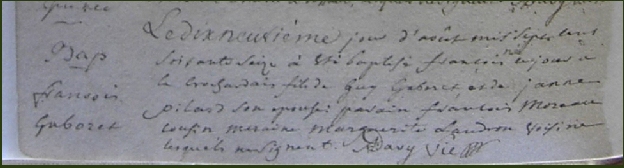 Bap
françois
Gaboret
Le dix neuvième jour d'août mil sept cent
soixante seize à été baptisé françois né ce jour a
la crochardais fils de Guy Gaboret et de janne
pilard son epouse parain francois moreau
cousin maraine marguerite Landron voisine
lesquels ne signent. Davy Vic